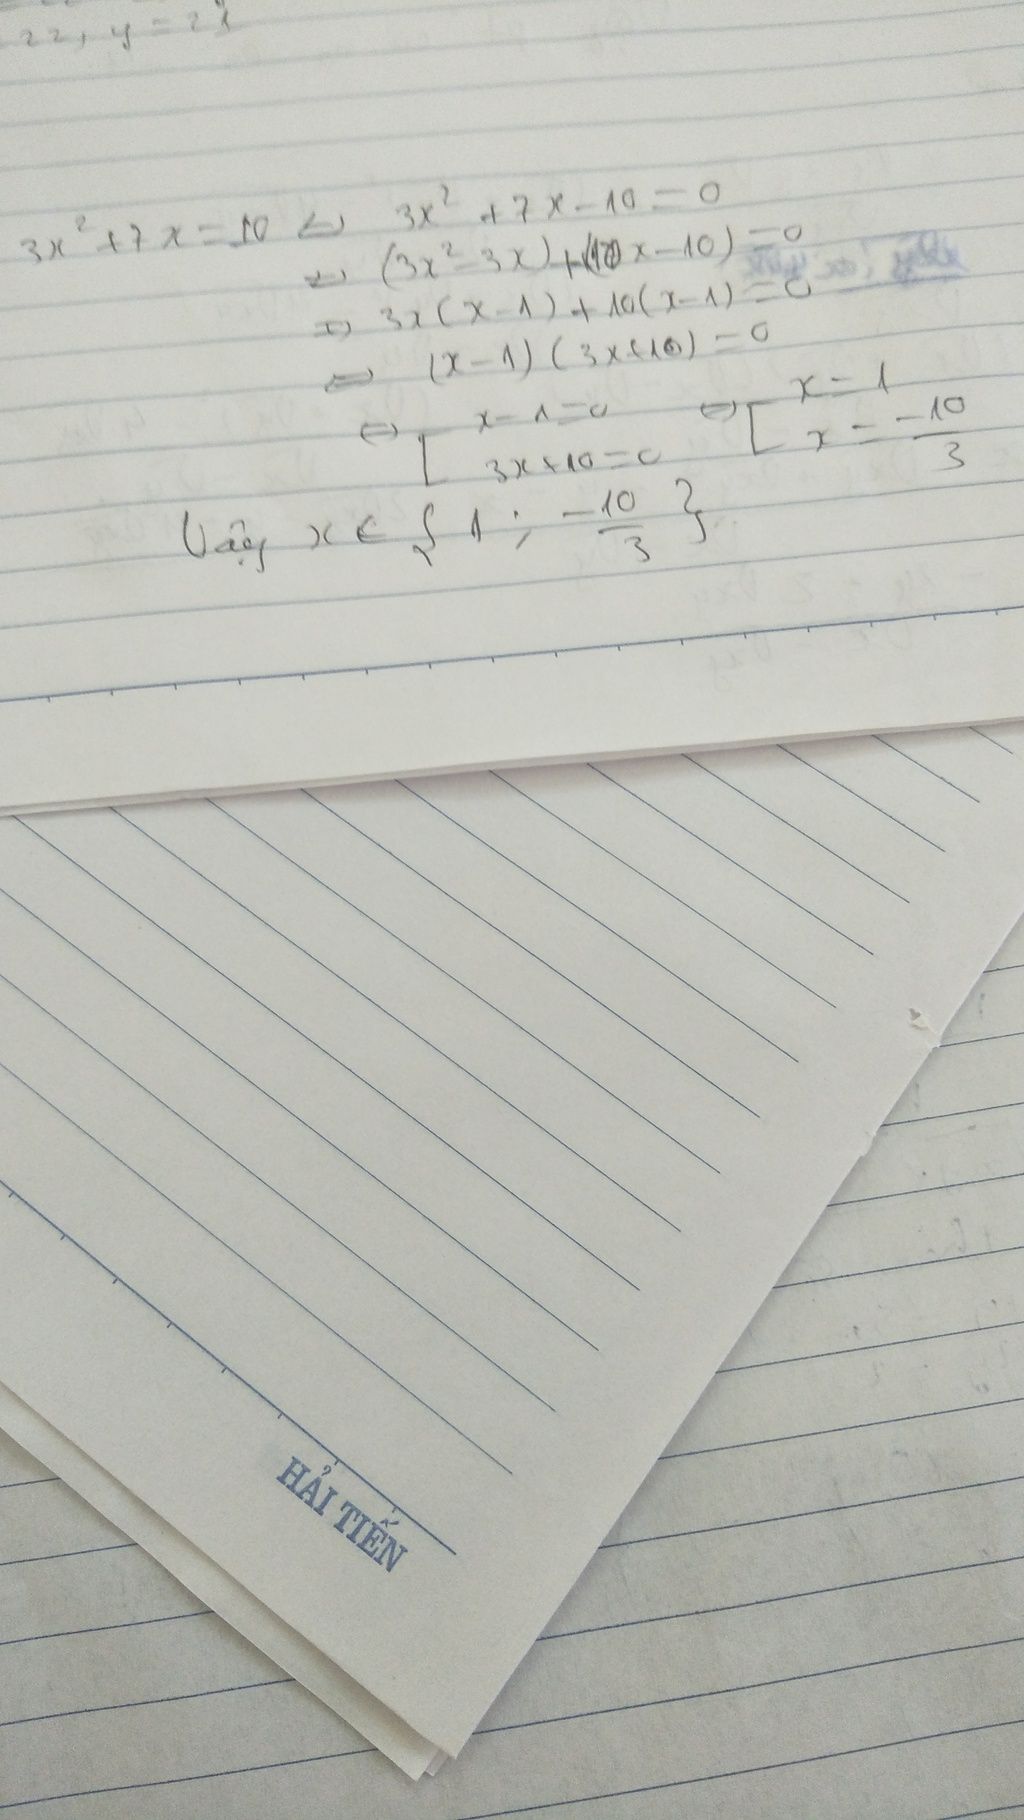 22, y = 21
3x² + 7x = 10 ⇔ 3x² + 7x - 10 = 0
⇔ (3x² - 3x) + (10x - 10) = 0
⇔ 3x(x - 1) + 10(x - 1) = 0
⇔ (x - 1)(3x + 10) = 0
⇔ [ x - 1 = 0 ⇔ [ x = 1
3x + 10 = 0 x = -10/3
Vậy x ∈ { 1 ; -10/3 }
HẢI TIẾN